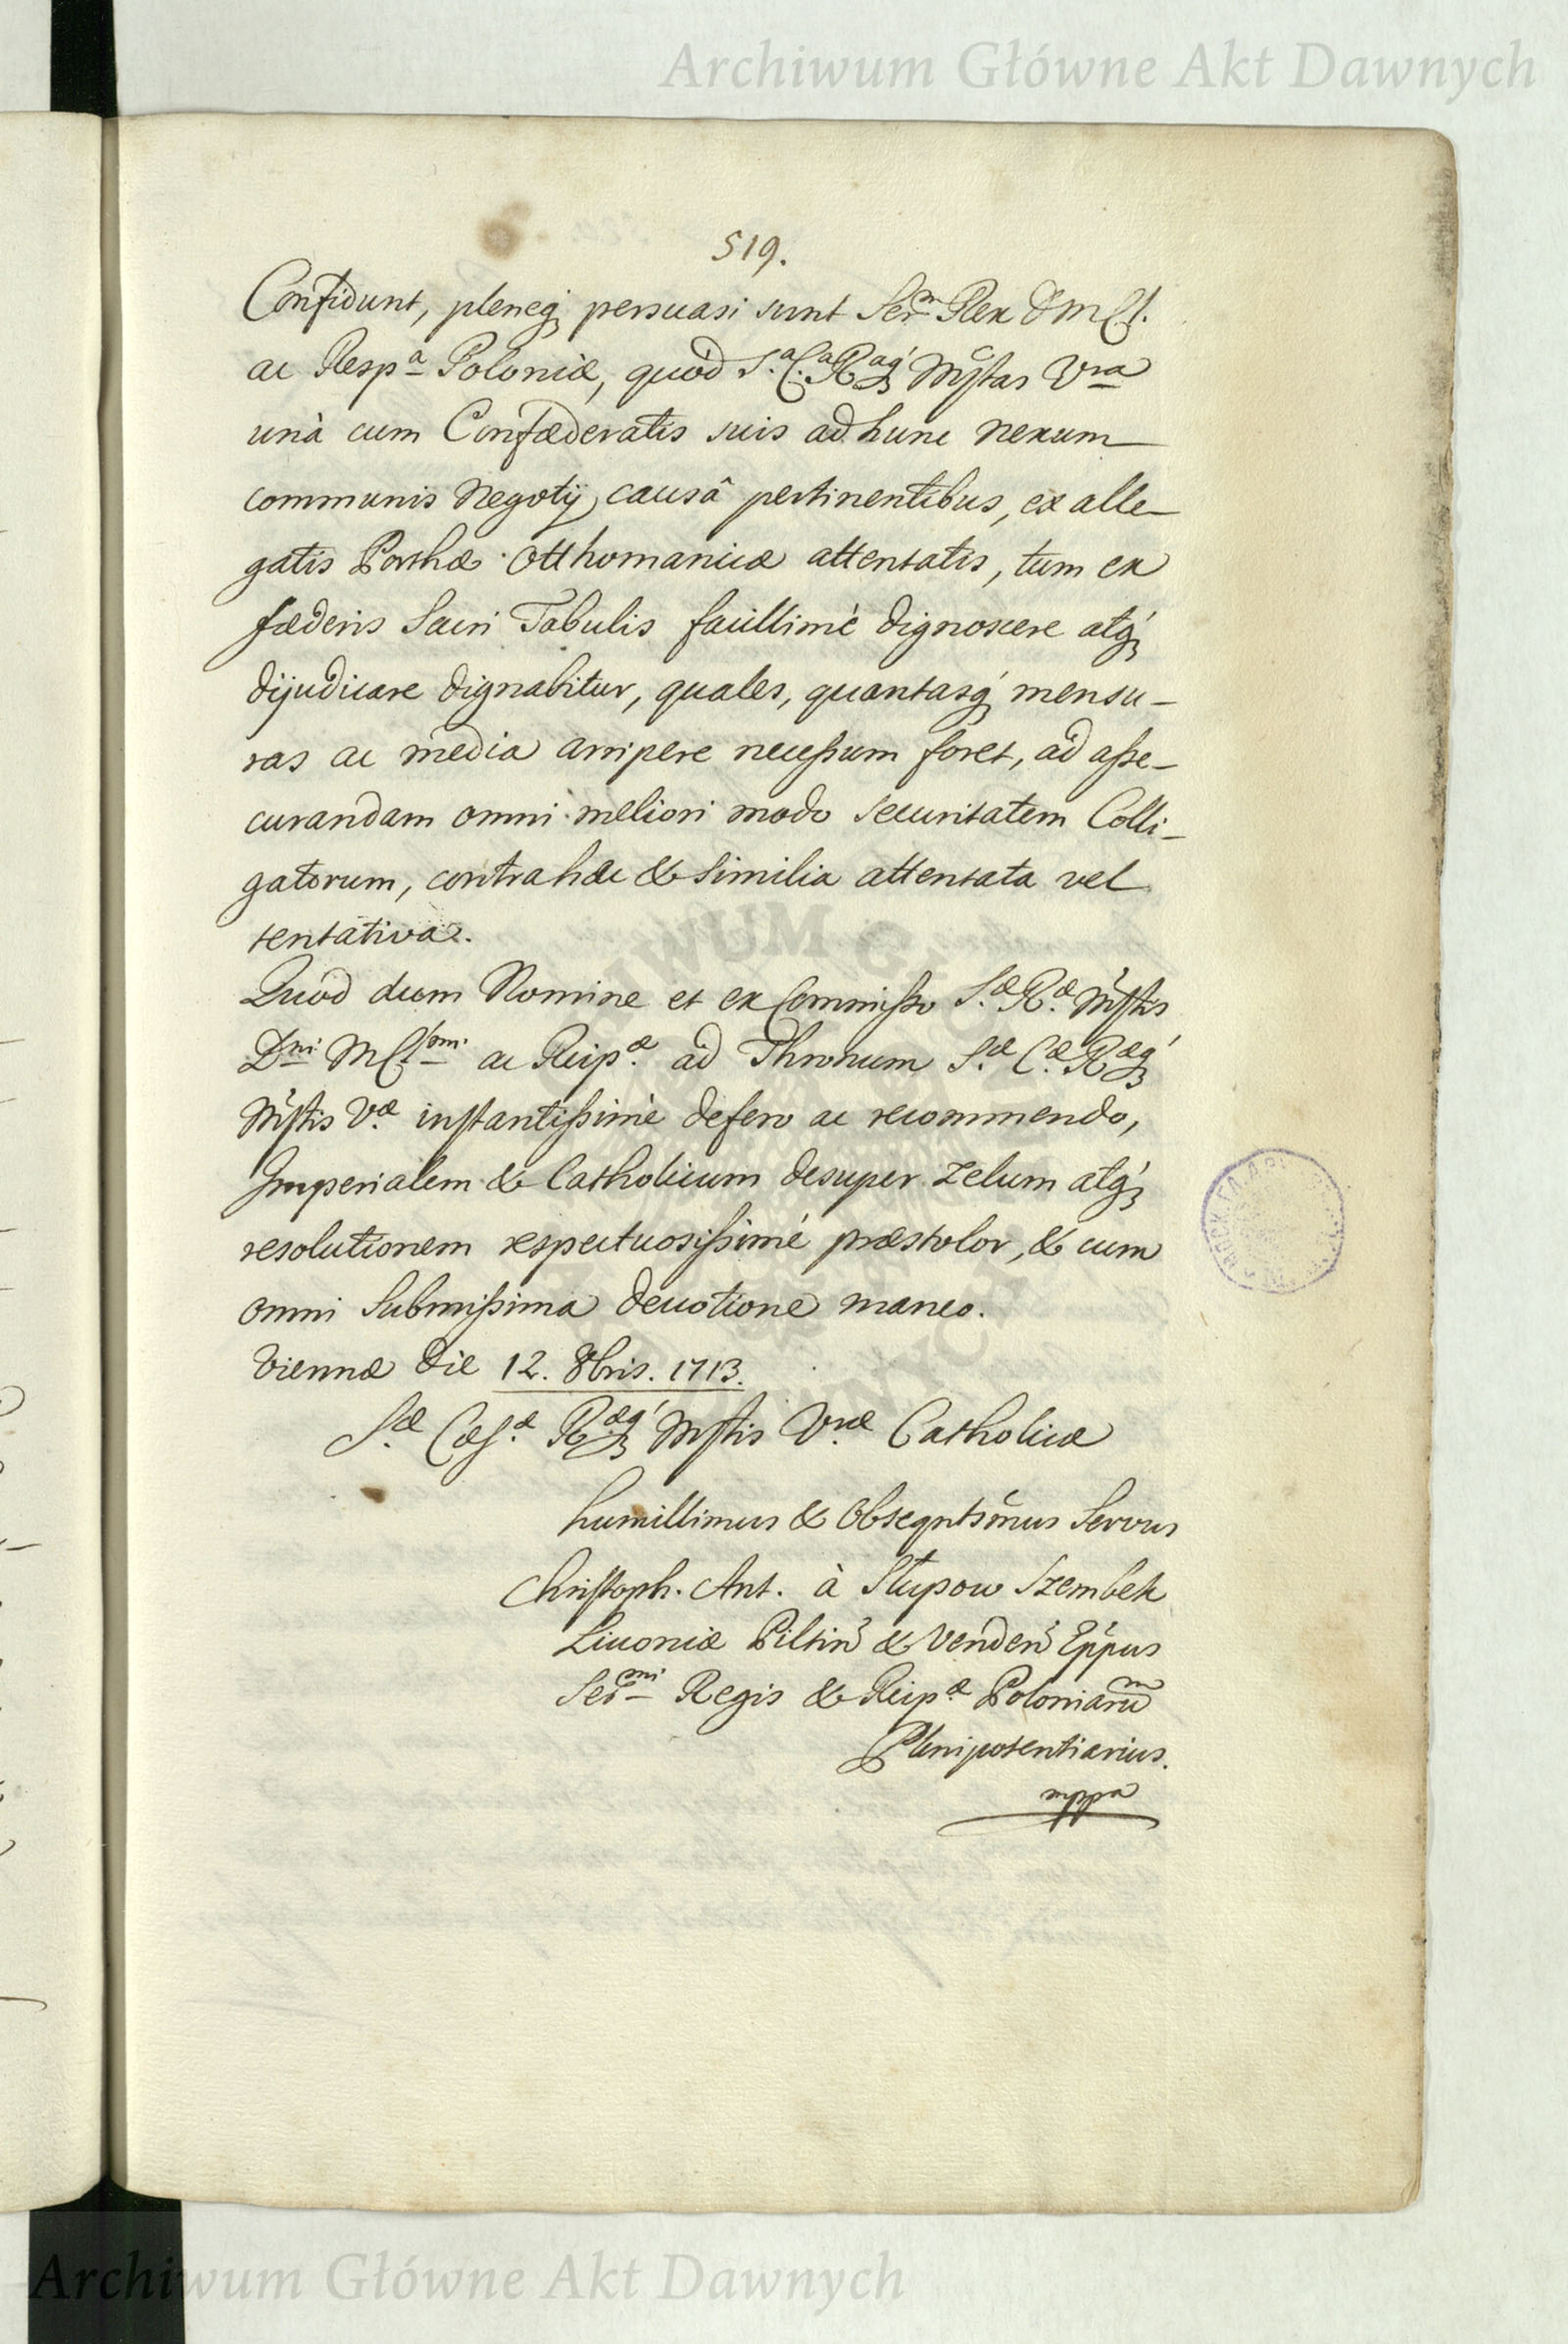 Archiwum Główne Akt Dawnych
519.
Confidunt, pleneq; persuasi sunt Ser.m Rex D M Cl.
ac Resp.a Poloniæ, quòd S.a C.a R.aq; Mṡtas Vra
unà cum Confæderatis suis ad hunc nexum
communis Negotij causâ pertinentibus, ex alle-
gatis Porthæ Otthomanicæ attentatis, tum ex
fæderis Sacri Tabulis facillimè dignoscere atq;
dijudicare dignabitur, quales, quantasq; mensu-
ras ac media arripere necessum foret, ad asse-
curandam omni meliori modo securitatem Colli-
gatorum, contra hæc & similia attentata vel
tentativa.
Quòd dum Nomine et ex Commisso S.æ R.æ Mṡtis
D.ni M Cl.mi ac Reip.æ ad Thronum S.æ C.æ R.æq;
Mṡtis V.æ instantissimè defero ac recommendo,
Imperialem & Catholicum desuper zelum atq;
resolutionem respectuosissimè præstolor, & cum
omni submissima devotione maneo.
Viennæ die 12. 8bris. 1713.
S.æ Cæs.æ R.æq; Mṡtis V.ræ Catholicæ
humillimus & Obseqntsm̃us Servus
Christoph. Ant. à Słupow Szembek
Livoniæ Piltin̄ & Venden̄ Epp̄us
Ser.mi Regis & Reip.æ Poloniarum
Plenipotentiarius.
mppa
Archiwum Główne Akt Dawnych